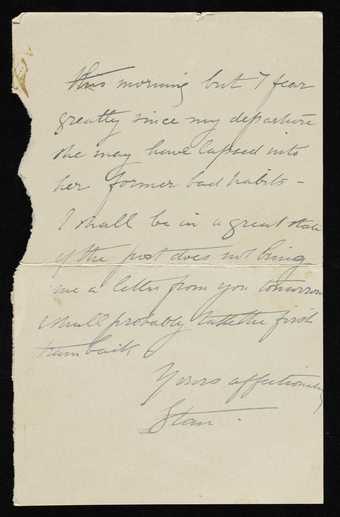 this morning but I fear
greatly since my departure
she may have lapsed into
her former bad habits -
I shall be in a great state
if the post does not bring
me a letter from you tomorrow
shall probably take the first
train back
Yours affectionately
Stan.